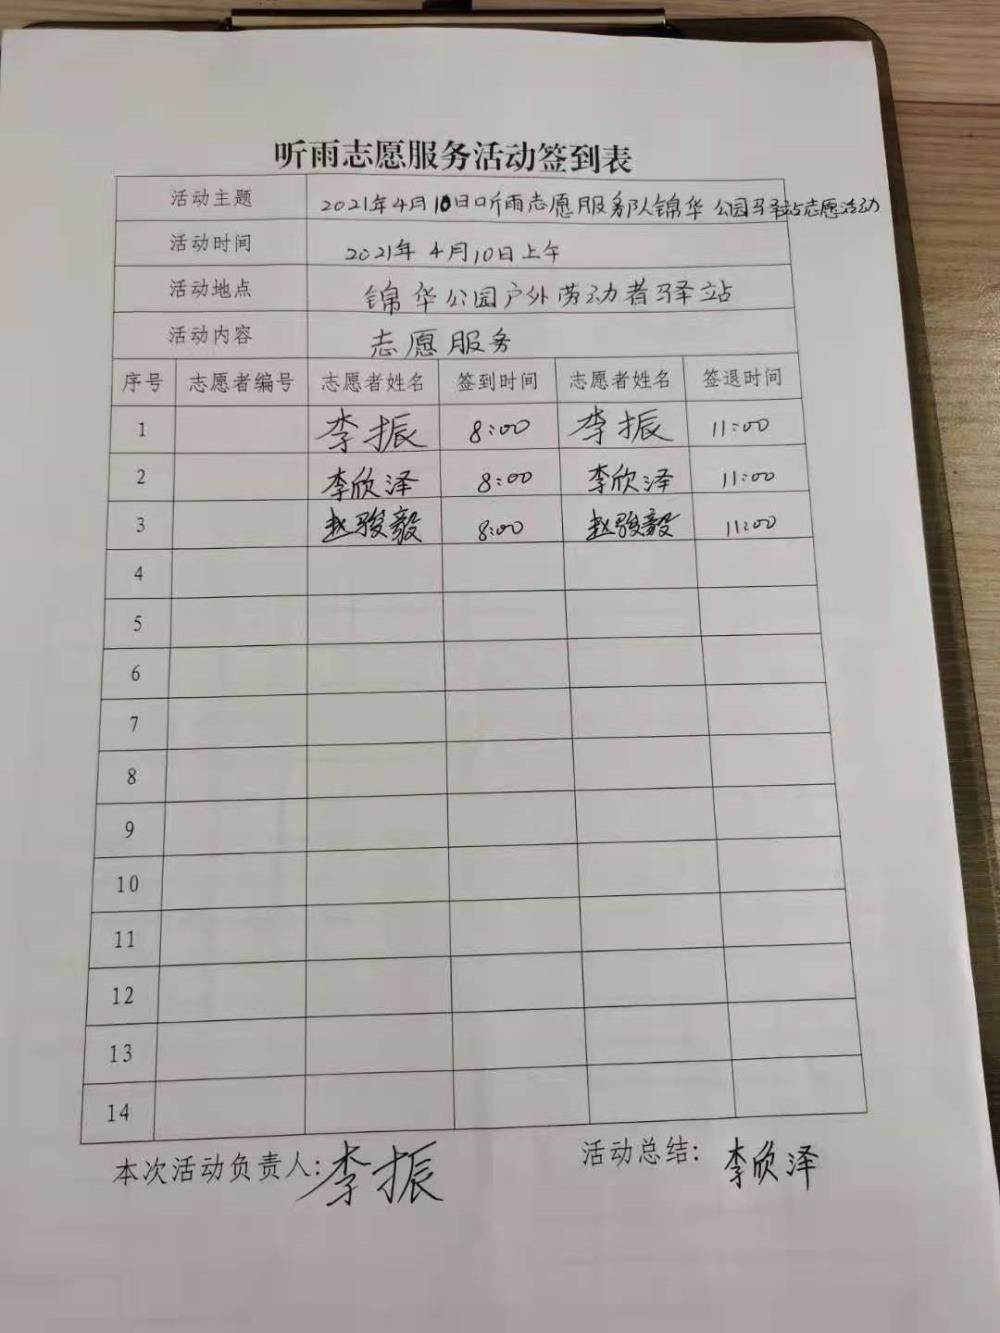 听雨志愿服务活动签到表
活动主题 2021年4月10日听雨志愿服务队锦华公园驿站志愿活动
活动时间 2021年4月10日上午
活动地点 锦华公园户外劳动者驿站
活动内容 志愿服务
序号 志愿者编号 志愿者姓名 签到时间 志愿者姓名 签退时间
1 李振 8:00 李振 11:00
2 李欣泽 8:00 李欣泽 11:00
3 赵骏毅 8:00 赵骏毅 11:00
4
5
6
7
8
9
10
11
12
13
14
本次活动负责人:李振 活动总结:李欣泽